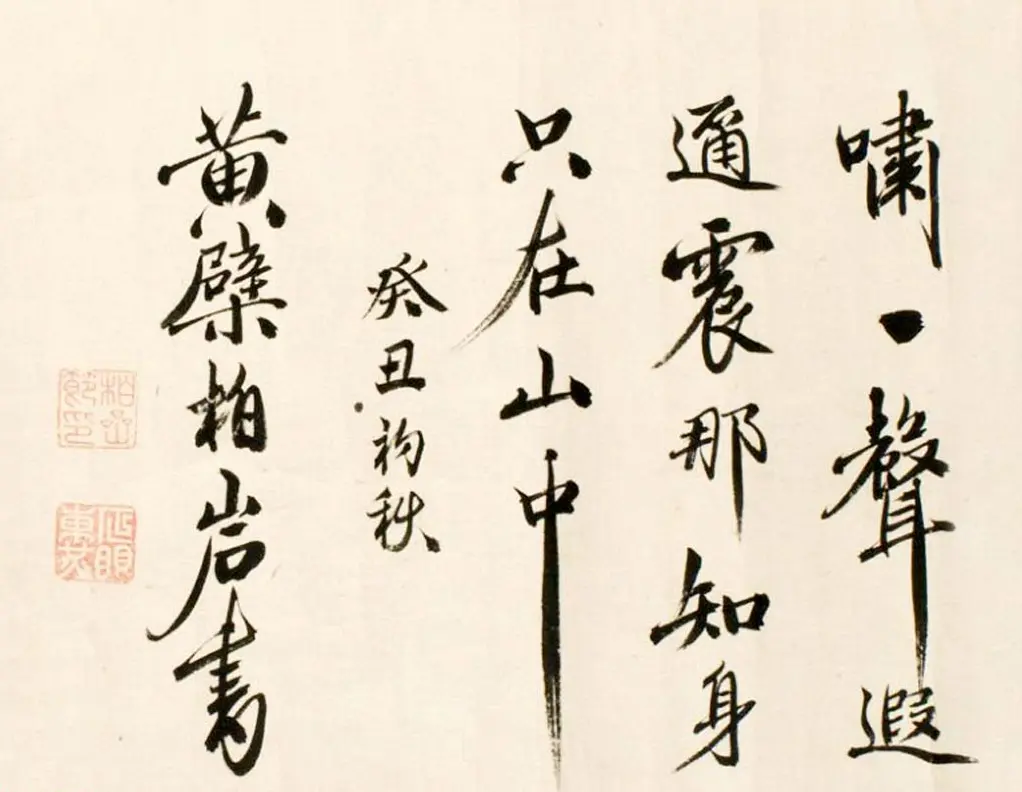 嘯一聲遐
通震那知身
只在山中
癸丑初秋
黄檗柏岩書